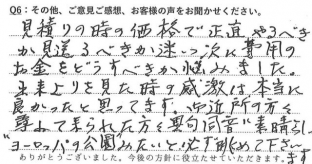 Q6：その他、ご意見ご感想、お客様の声をお聞かせください。
見積りの時の価格で正直やるべき
か見送るべきか迷い次に費用の
お金をどうすべきか悩みました。
出来上りを見た時の感激は本当に
良かったと思ってます。御近所の方々
尋ねて来られた方々異句同音に素晴らしい
"ヨーロッパの公園"みたいと、必ず眺めて下さい
ます
ありがとうございました。今後の方針に役立たせていただきます。